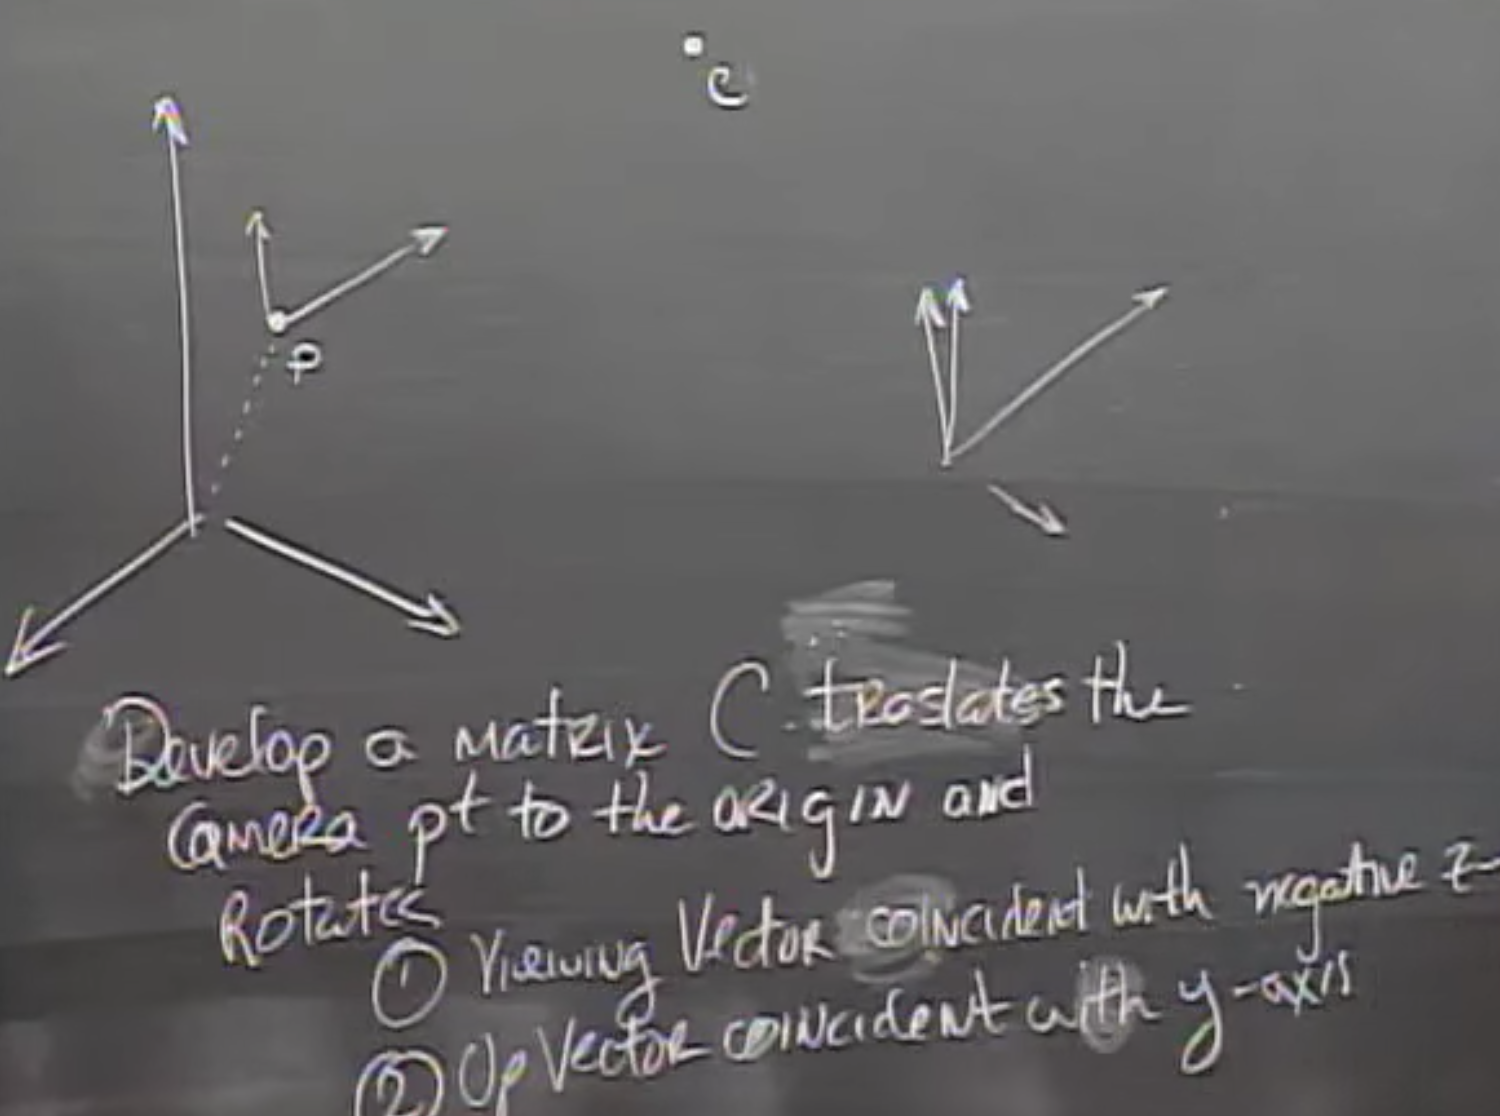 C
P
Develop a matrix C traslates the
camera pt to the origin and
Rotates
① Viewing Vector coincident with negative z-
② Up Vector coincident with y-axis